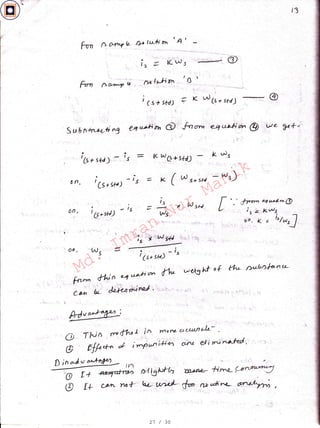 13
For sample solution 'A' -
i_s = K W_s ——— ③
For sample solution 'B'
i_(s+std) = K W_(s+std) ——— ④
Substracting equation ③ from equation ④ we get-
i_(s+std) - i_s = K W_(s+std) - K W_s
or, i_(s+std) - i_s = K ( W_s+std - W_s )
or, i_(s+std) - i_s = i_s/W_s × W_std [ ∵ from equation ③
i_s = K W_s
or, K = i_s/W_s ]
or, W_s = i_s × W_std / i_(s+std) - i_s
From this equation the weight of the substance
can be determined.
Advantages :
① This method is more accurate.
② Effects of impurities are eliminated.
Disadvantages
① It is slightly time consuming
② It can not be used for routine analysis.
Md. Imran Nur Manik
27 / 30